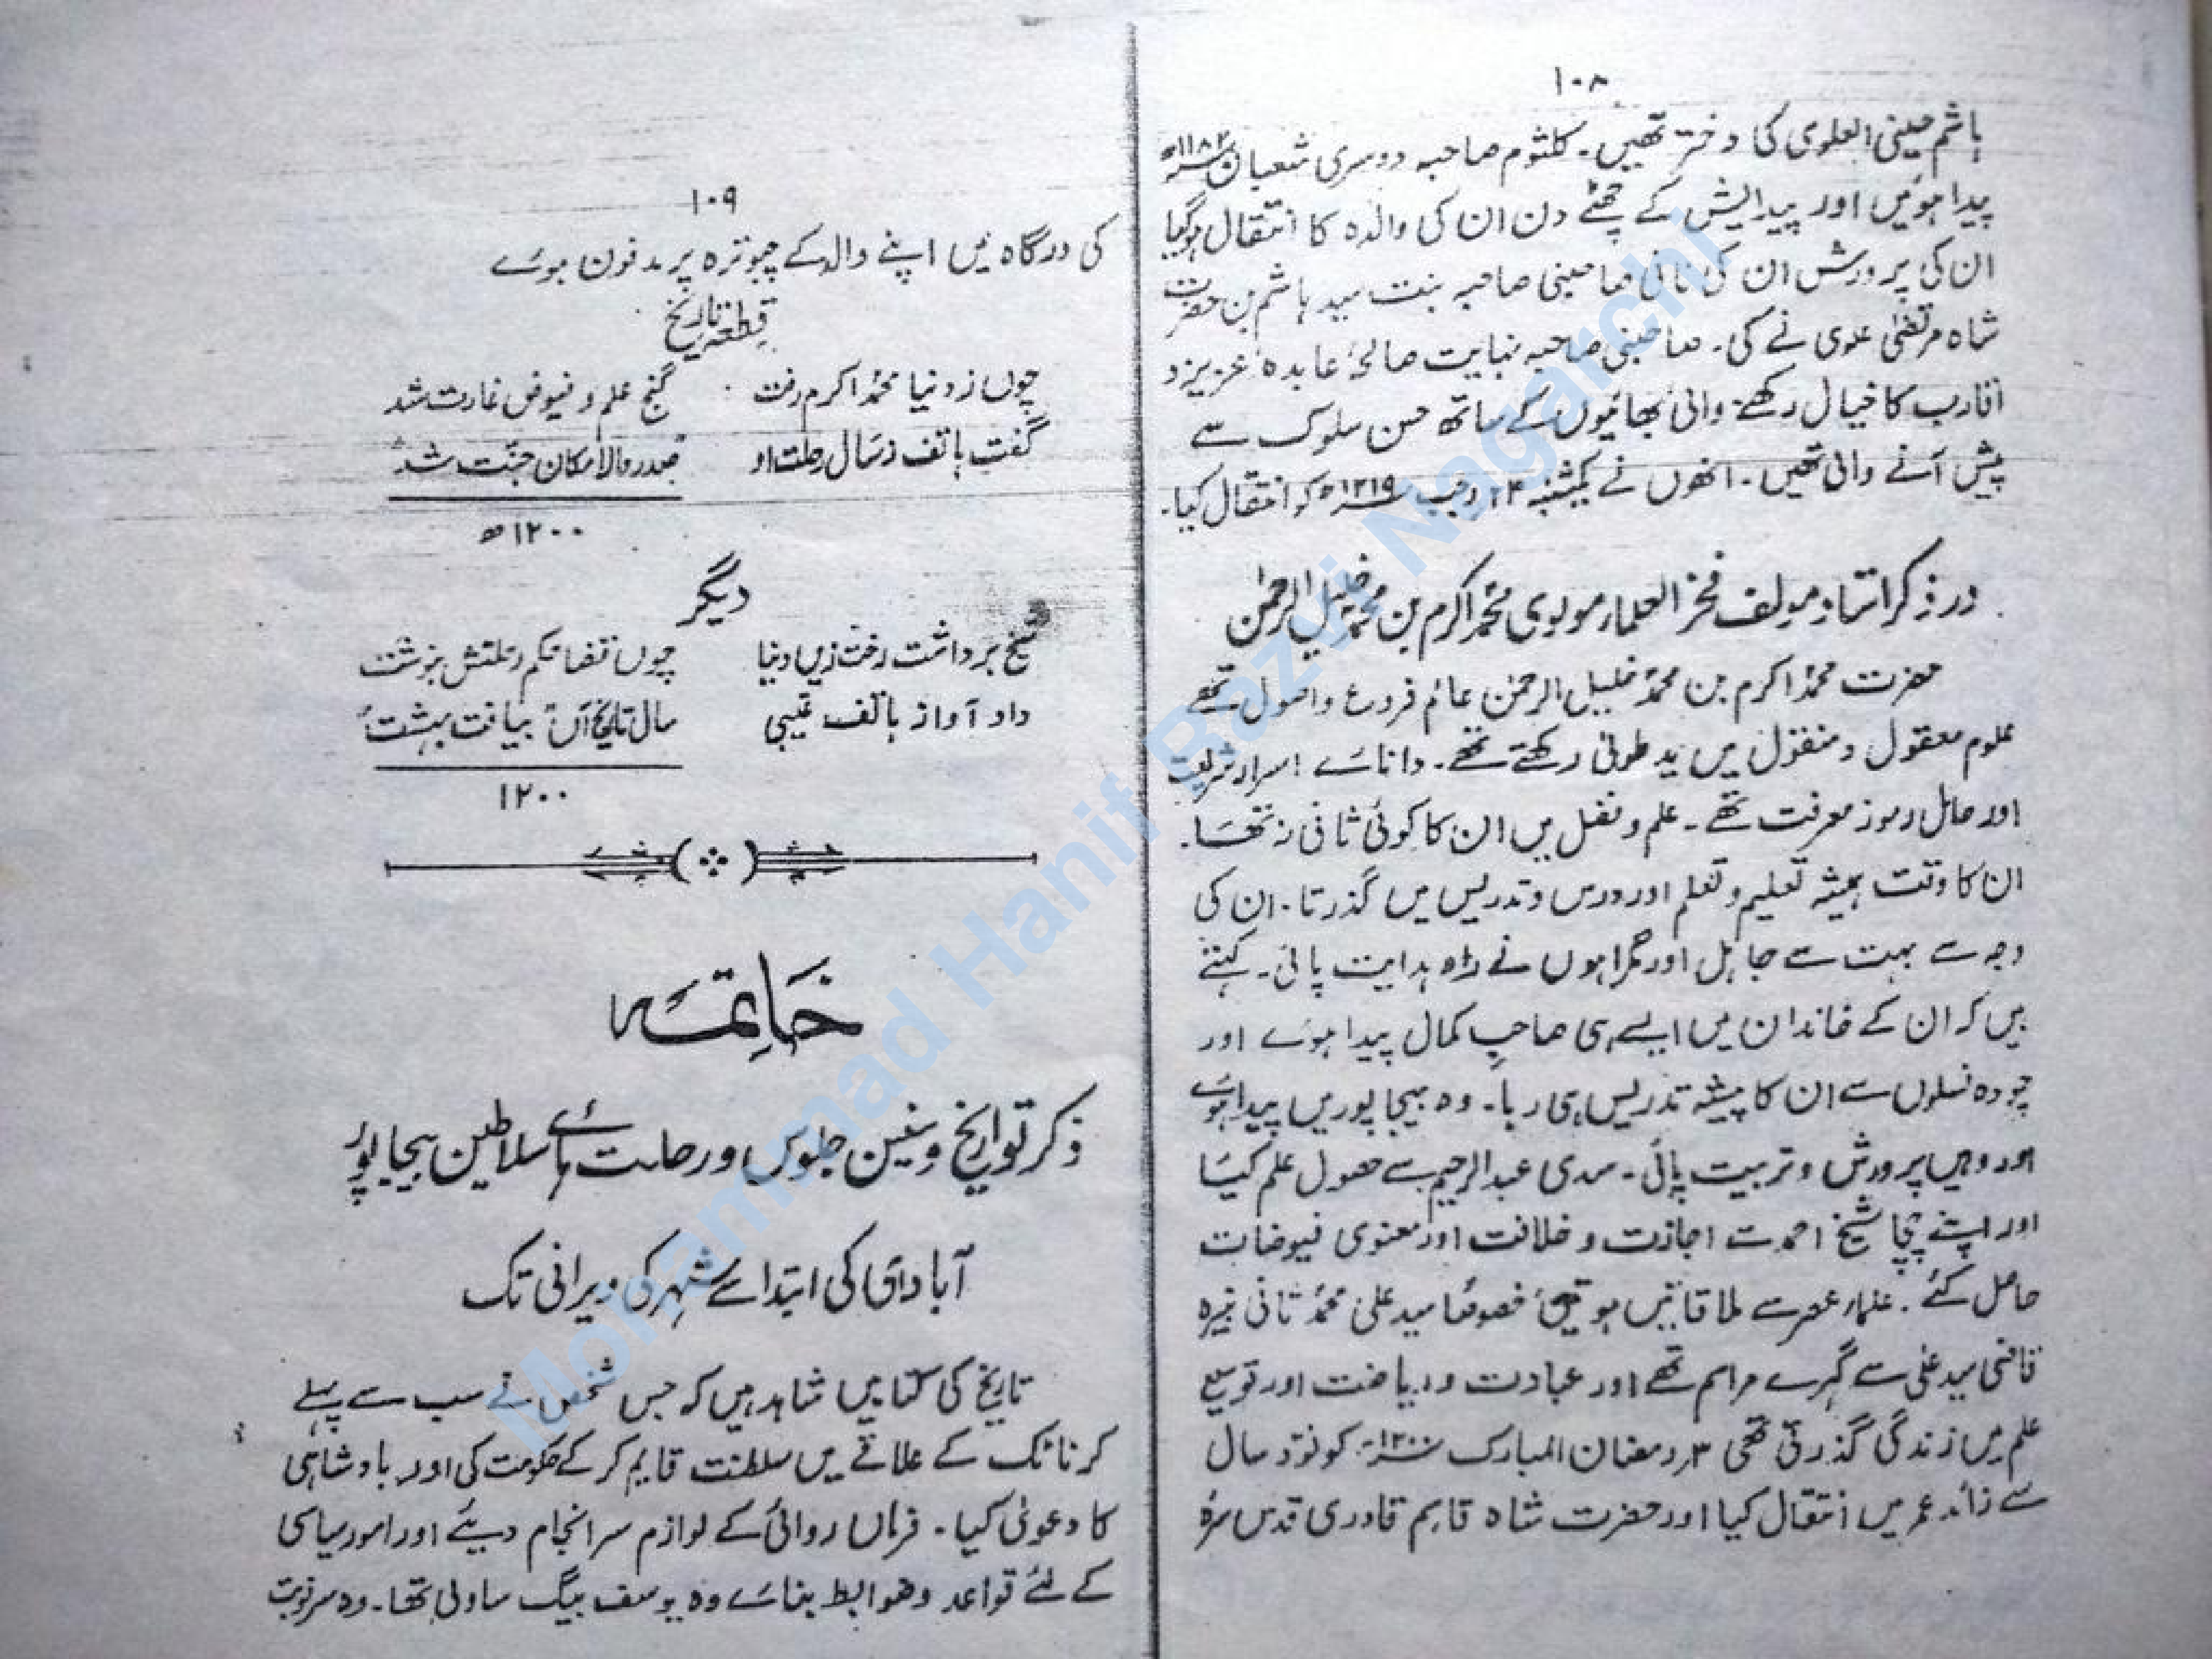 ۱۰۸
ہاشم حسینی العلوی کی دختر تھیں۔ کلثوم صاحبہ دوسری شعبان ۱۱۸۲ھ
پیدا ہوئیں اور پیدایش کے چھٹے دن ان کی والدہ کا انتقال ہوگیا
ان کی پرورش ان کی نانی صاحبنی صاحبہ بنت سید ہاشم بن حضرت
شاہ مرتضیٰ علوی نے کی۔ صاحبنی صاحبہ نہایت صالحہ عابدہ، عزیز و
اقارب کا خیال رکھنے والی بھائیوں کے ساتھ حسن سلوک سے
پیش آنے والی تھیں۔ انھوں نے یکشنبہ ۲۴ رجب ۱۲۱۹ھ کو انتقال کیا۔
در ذکر استاد مولف فخر العلماء مولوی محمد اکرم بن محمد خلیل الرحمٰن
حضرت محمد اکرم بن محمد خلیل الرحمٰن عالم فروع و اصول تھے
علوم معقول و منقول میں ید طولی رکھتے تھے۔ دانائے اسرار شریعت
اور حامل رموز معرفت تھے۔ علم و فضل میں ان کا کوئی ثانی نہ تھا۔
ان کا وقت ہمیشہ تعلیم و تعلم اور درس و تدریس میں گذرتا۔ ان کی
وجہ سے بہت سے جاہل اور گمراہوں نے راہ ہدایت پائی۔ کہتے
ہیں کہ ان کے خاندان میں ایسے ہی صاحبِ کمال پیدا ہوئے اور
چودہ نسلوں سے ان کا پیشہ تدریس ہی رہا۔ وہ بیجاپور میں پیدا ہوئے
اور وہیں پرورش و تربیت پائی۔ سدی عبدالرحیم سے حصول علم کیا
اور اپنے چچا شیخ احمد سے اجازت و خلافت اور معنوی فیوضات
حاصل کئے۔ علماء عصر سے ملاقاتیں ہوتیں خصوصاً سید علی محمد ثانی نبیرہ
قاضی سید علی سے گہرے مراسم تھے اور عبادت و ریاضت اور توسیع
علم میں زندگی گذرتی تھی ۳ رمضان المبارک ۱۲۰۰ھ کو نوّد سال
سے زائد عمر میں انتقال کیا اور حضرت شاہ قاسم قادری قدس سرہ
۱۰۹
کی درگاہ میں اپنے والد کے چبوترہ پر مدفون ہوئے
قطعہ تاریخ
چوں ز دنیا محمد اکرم رفت گنج علم و فیوض غارت شد
گفت ہاتف ز سال رحلت او صدر والا مکان جنّت شد
۱۲۰۰ھ
دیگر
شیخ برداشت رخت زیں دنیا چوں قضا حکم رحلتش بنوشت
داد آواز ہاتف غیبی سال تاریخ آں بیافت بہشت
۱۲۰۰
خاتمہ
ذکر تواریخ و سنین جلوس اور حالت ہائے سلاطین بیجاپور
آبادی کی ابتدا سے شہر کی ویرانی تک
تاریخ کی کتابیں شاہد ہیں کہ جس شخص نے سب سے پہلے
کرناٹک کے علاقے میں سلطنت قایم کر کے حکومت کی اور بادشاہی
کا دعویٰ کیا۔ فرماں روائی کے لوازم سرانجام دیئے اور امور سیاسی
کے لئے قواعد و ضوابط بنائے وہ یوسف بیگ ساولی تھا۔ وہ سرنوبت
Mohammad Hanif Bazvi Nagarchi